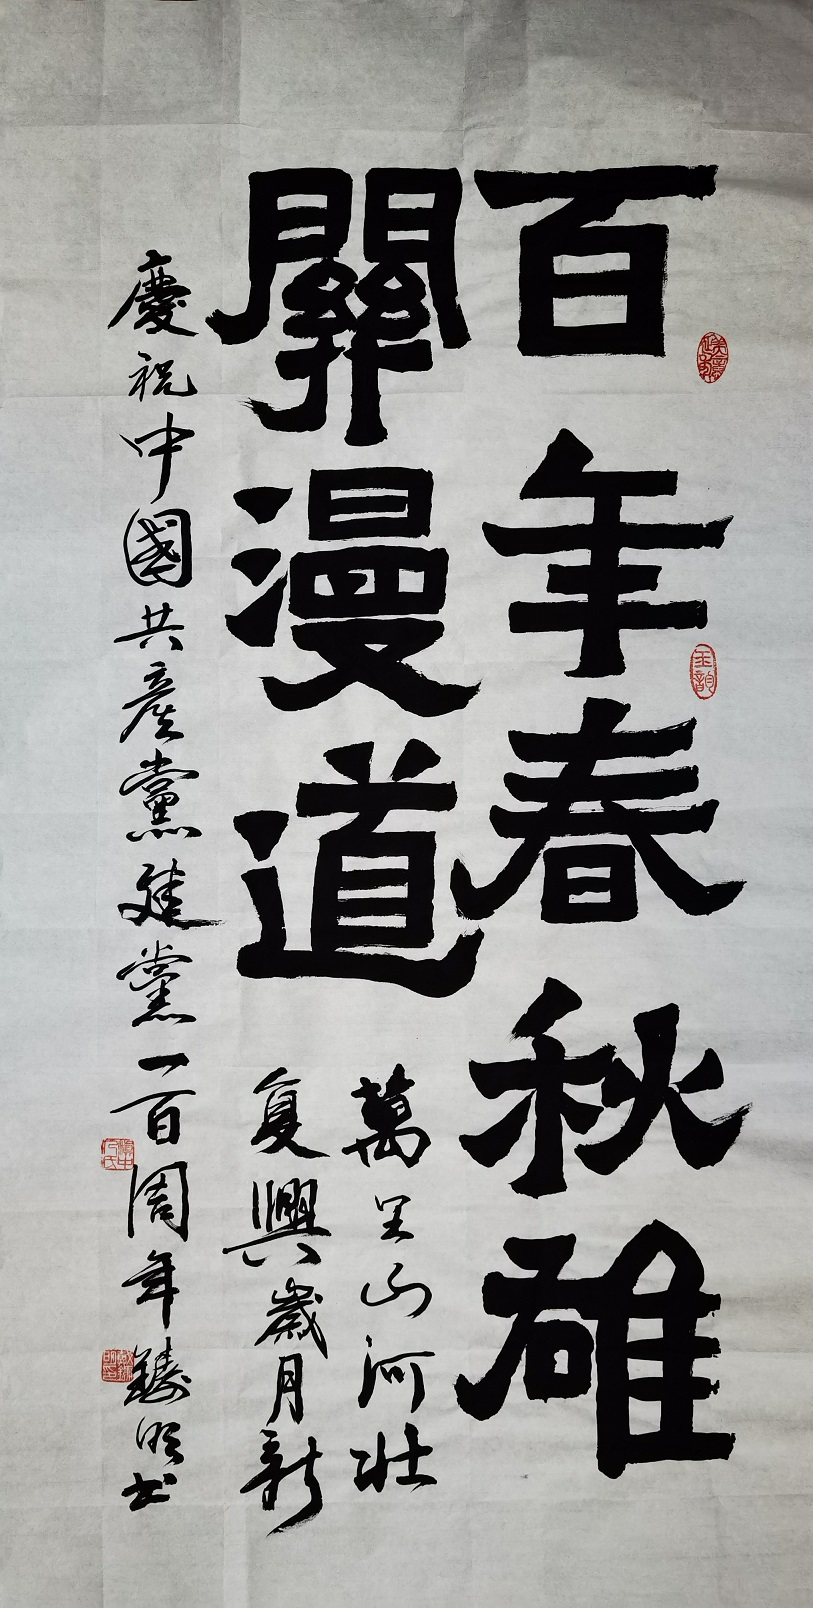 百年春秋雄
關漫道
萬里山河壯
复興歲月新
慶祝中國共產黨建黨一百周年鑄明书
金韵